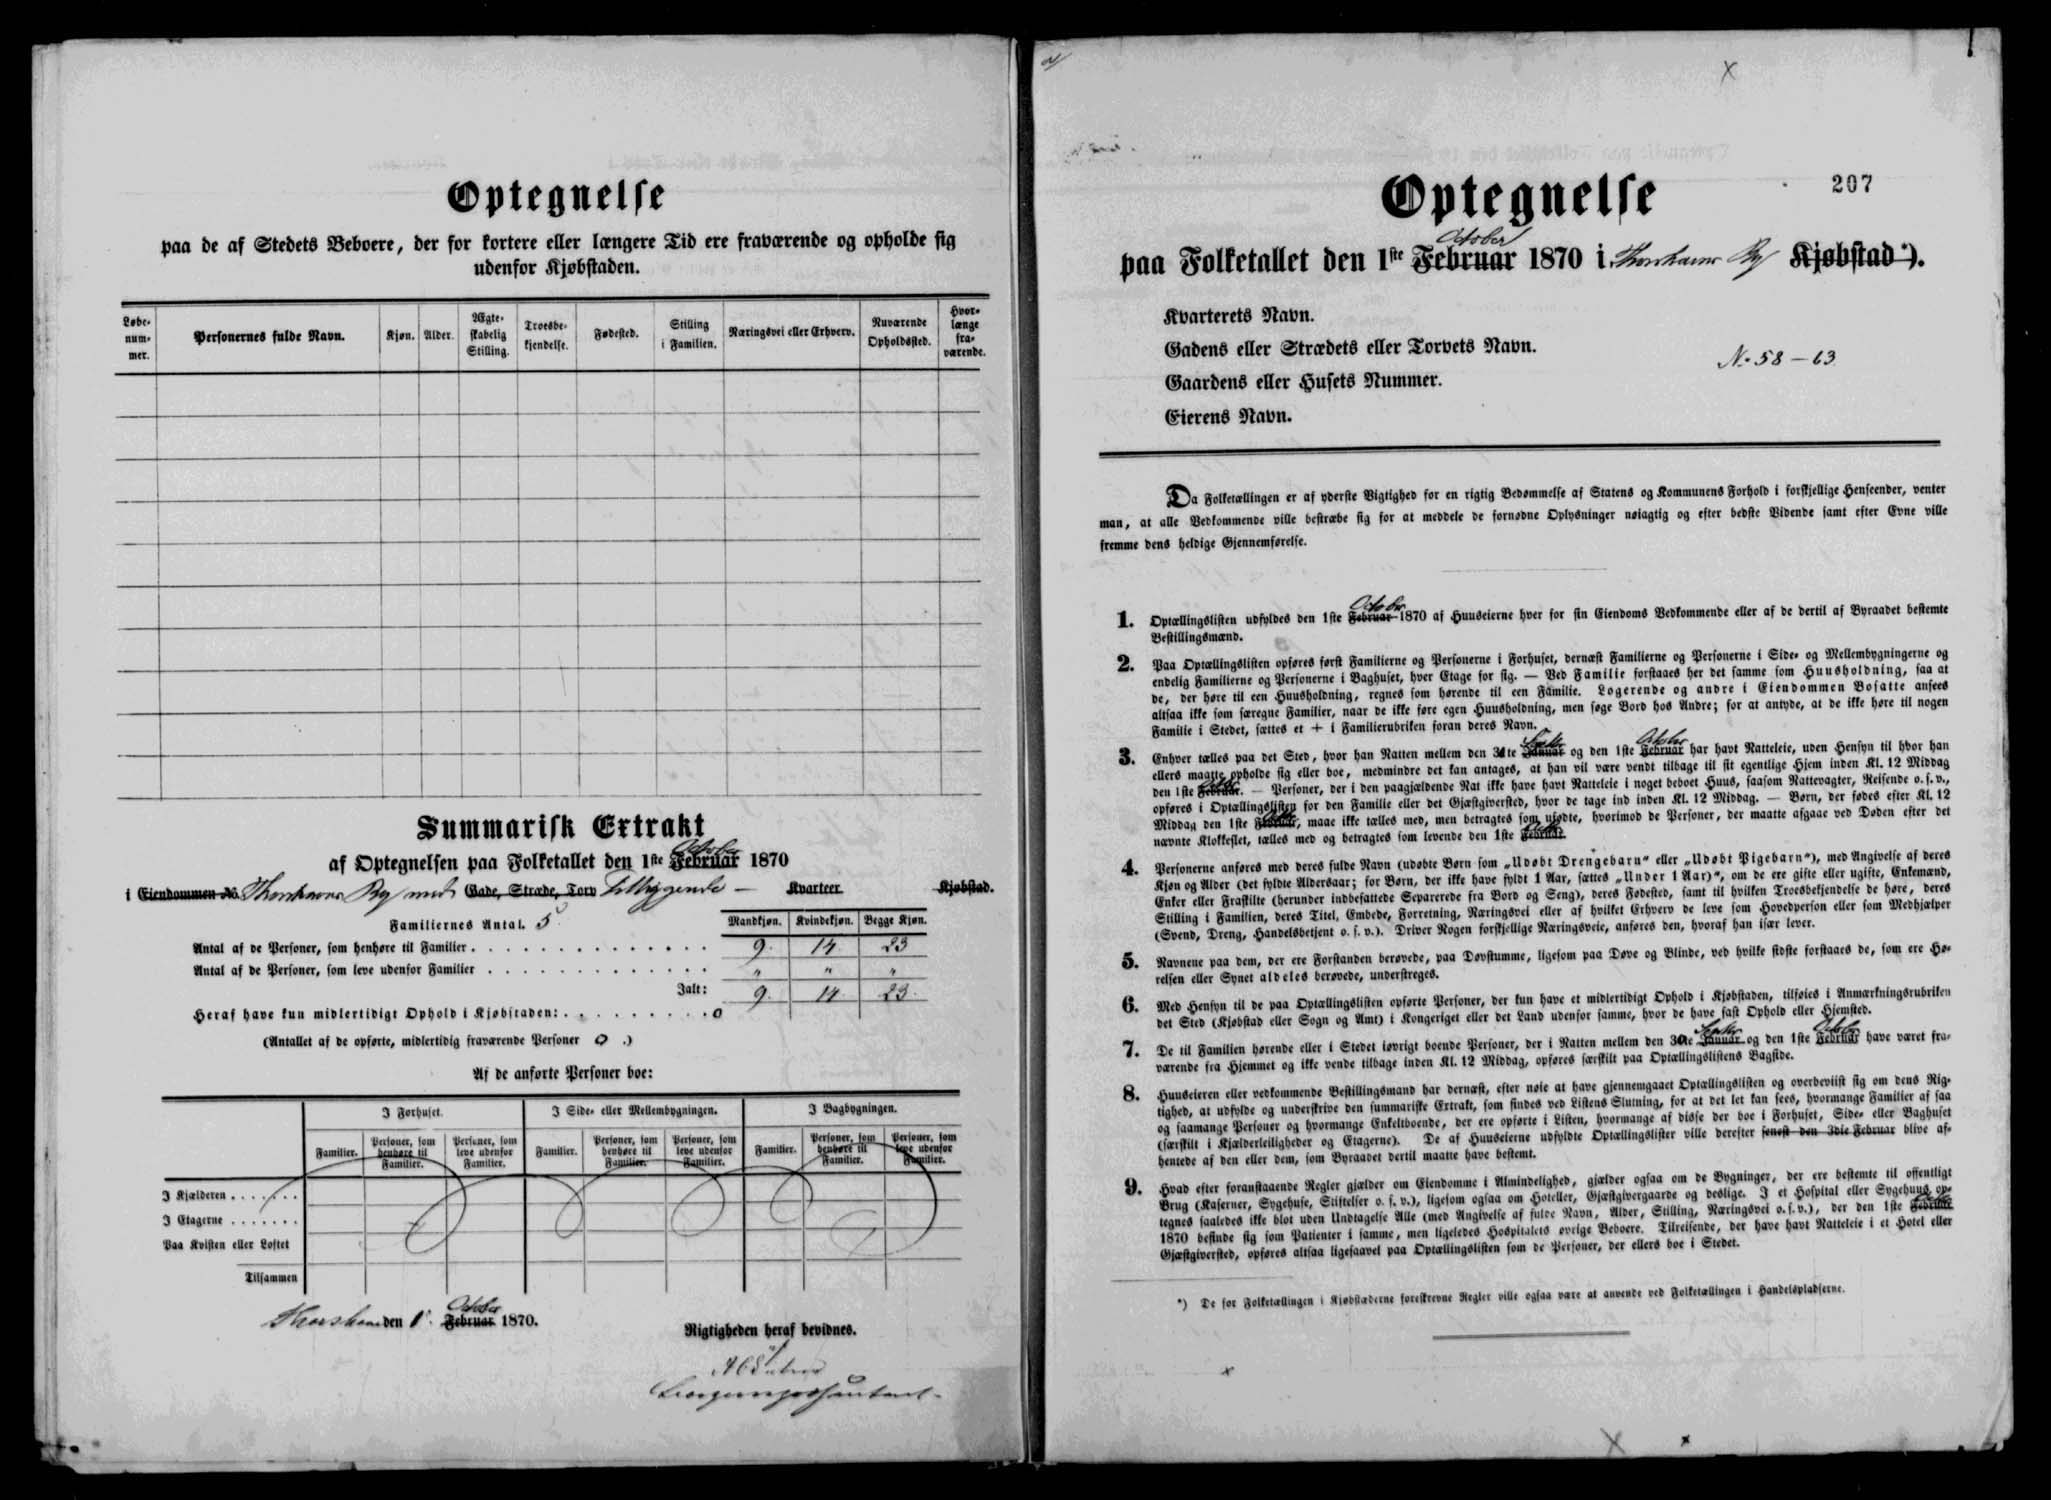 Optegnelse
paa de af Stedets Beboere, der for kortere eller længere Tid ere fraværende og opholde sig
udenfor Kjøbstaden.
Løbe-
num-
mer.
Personernes fulde Navn.
Kjøn.
Alder.
Ægte-
skabelig
Stilling.
Troesbe-
kjendelse.
Fødested.
Stilling
i Familien.
Næringsvei eller Erhverv.
Nuværende
Opholdssted.
Hvor-
længe
fra-
værende.
Summarisk Extrakt
October
af Optegnelsen paa Folketallet den 1ste Februar 1870
i Eiendommen No. Thorshavns By med Gade, Stræde, Torv Tilliggende — Kvarteer Kjøbstad.
Familiernes Antal. 5
Mandkjøn. Kvindekjøn. Begge Kjøn.
Antal af de Personer, som henhøre til Familier . . . . . . . . . . . . . . 9. 14. 23
Antal af de Personer, som leve udenfor Familier . . . . . . . . . . . . . " " "
Ialt: 9. 14. 23.
Heraf have kun midlertidigt Ophold i Kjøbstaden: . . . . . . . . . . 0
(Antallet af de opførte, midlertidig fraværende Personer 0 .)
Af de anførte Personer boe:
I Forhuset.
I Side- eller Mellembygningen.
I Bagbygningen.
Familier.
Personer, som
henhøre til
Familier.
Personer, som
leve udenfor
Familier.
Familier.
Personer, som
henhøre til
Familier.
Personer, som
leve udenfor
Familier.
Familier.
Personer, som
henhøre til
Familier.
Personer, som
leve udenfor
Familier.
I Kjælderen . . . . . . .
I Etagerne . . . . . . .
Paa Kvisten eller Loftet
Tilsammen
October
Thorshavn den 1. Februar 1870.
Rigtigheden heraf bevidnes.
207
Optegnelse
October
paa Folketallet den 1ste Februar 1870 i Thorshavns By Kjøbstad*).
Kvarterets Navn.
Gadens eller Strædets eller Torvets Navn.
No 58 – 63
Gaardens eller Husets Nummer.
Eierens Navn.
Da Folketællingen er af yderste Vigtighed for en rigtig Bedømmelse af Statens og Kommunens Forhold i forskjellige Henseender, venter
man, at alle Vedkommende ville bestræbe sig for at meddele de fornødne Oplysninger nøiagtig og efter bedste Vidende samt efter Evne ville
fremme dens heldige Gjennemførelse.
October
1. Optællingslisten udfyldes den 1ste Februar 1870 af Huuseierne hver for sin Eiendoms Vedkommende eller af de dertil af Byraadet bestemte
Bestillingsmænd.
2. Paa Optællingslisten opføres først Familierne og Personerne i Forhuset, dernæst Familierne og Personerne i Side- og Mellembygningerne og
endelig Familierne og Personerne i Baghuset, hver Etage for sig. — Ved Familie forstaaes her det samme som Huusholdning, saa at
de, der høre til een Huusholdning, regnes som hørende til een Familie. Logerende og andre i Eiendommen Bosatte ansees
altsaa ikke som særegne Familier, naar de ikke føre egen Huusholdning, men søge Bord hos Andre; for at antyde, at de ikke høre til nogen
Familie i Stedet, sættes et + i Familierubriken foran deres Navn.
Septbr October
3. Enhver tælles paa det Sted, hvor han Natten mellem den 30te Januar og den 1ste Februar har havt Natteleie, uden Hensyn til hvor han
ellers maatte opholde sig eller boe, medmindre det kan antages, at han vil være vendt tilbage til sit egentlige Hjem inden Kl. 12 Middag
den 1ste Februar. — Personer, der i den paagjældende Nat ikke have havt Natteleie i noget beboet Huus, saasom Nattevagter, Reisende o. s. v.,
opføres i Optællingslisten for den Familie eller det Gjæstgiversted, hvor de tage ind inden Kl. 12 Middag. — Børn, der fødes efter Kl. 12
Middag den 1ste Februar, maae ikke tælles med, men betragtes som ufødte, hvorimod de Personer, der maatte afgaae ved Døden efter det
nævnte Klokkeslet, tælles med og betragtes som levende den 1ste Februar.
4. Personerne anføres med deres fulde Navn (udøbte Børn som „Udøbt Drengebarn" eller „Udøbt Pigebarn"), med Angivelse af deres
Kjøn og Alder (det fyldte Aldersaar; for Børn, der ikke have fyldt 1 Aar, sættes „Under 1 Aar)", om de ere gifte eller ugifte, Enkemænd,
Enker eller Fraskilte (herunder indbefattede Separerede fra Bord og Seng), deres Fødested, samt til hvilken Troesbekjendelse de høre, deres
Stilling i Familien, deres Titel, Embede, Forretning, Næringsvei eller af hvilket Erhverv de leve som Hovedperson eller som Medhjælper
(Svend, Dreng, Handelsbetjent o. s. v.). Driver Nogen forskjellige Næringsveie, anføres den, hvoraf han især lever.
5. Navnene paa dem, der ere Forstanden berøvede, paa Døvstumme, ligesom paa Døve og Blinde, ved hvilke sidste forstaaes de, som ere Hø-
relsen eller Synet aldeles berøvede, understreges.
6. Med Hensyn til de paa Optællingslisten opførte Personer, der kun have et midlertidigt Ophold i Kjøbstaden, tilføies i Anmærkningsrubriken
det Sted (Kjøbstad eller Sogn og Amt) i Kongeriget eller det Land udenfor samme, hvor de have fast Ophold eller Hjemsted.
Septbr October
7. De til Familien hørende eller i Stedet iøvrigt boende Personer, der i Natten mellem den 30te Januar og den 1ste Februar have været fra-
værende fra Hjemmet og ikke vende tilbage inden Kl. 12 Middag, opføres særskilt paa Optællingslistens Bagside.
8. Huuseieren eller vedkommende Bestillingsmand har dernæst, efter nøie at have gjennemgaaet Optællingslisten og overbeviist sig om dens Rig-
tighed, at udfylde og underskrive den summariske Extrakt, som findes ved Listens Slutning, for at det let kan sees, hvormange Familier af saa
og saamange Personer og hvormange Enkeltboende, der ere opførte i Listen, hvormange af disse der boe i Forhuset, Side- eller Baghuset
(særskilt i Kjælderleiligheder og Etagerne). De af Huuseierne udfyldte Optællingslister ville derefter senest den 3die Februar blive af-
hentede af den eller dem, som Byraadet dertil maatte have bestemt.
9. Hvad efter foranstaaende Regler gjælder om Eiendomme i Almindelighed, gjælder ogsaa om de Bygninger, der ere bestemte til offentligt
Brug (Kaserner, Sygehuse, Stiftelser o. s. v.), ligesom ogsaa om Hoteller, Gjæstgivergaarde og deslige. I et Hospital eller Sygehuus op-
tegnes saaledes ikke blot uden Undtagelse Alle (med Angivelse af fulde Navn, Alder, Stilling, Næringsvei o. s. v.), der den 1ste Februar
1870 befinde sig som Patienter i samme, men ligeledes Hospitalets øvrige Beboere. Tilreisende, der have havt Natteleie i et Hotel eller
Gjæstgiversted, opføres altsaa ligesaavel paa Optællingslisten som de Personer, der ellers boe i Stedet.
*) De for Folketællingen i Kjøbstæderne foreskrevne Regler ville ogsaa være at anvende ved Folketællingen i Handelspladserne.